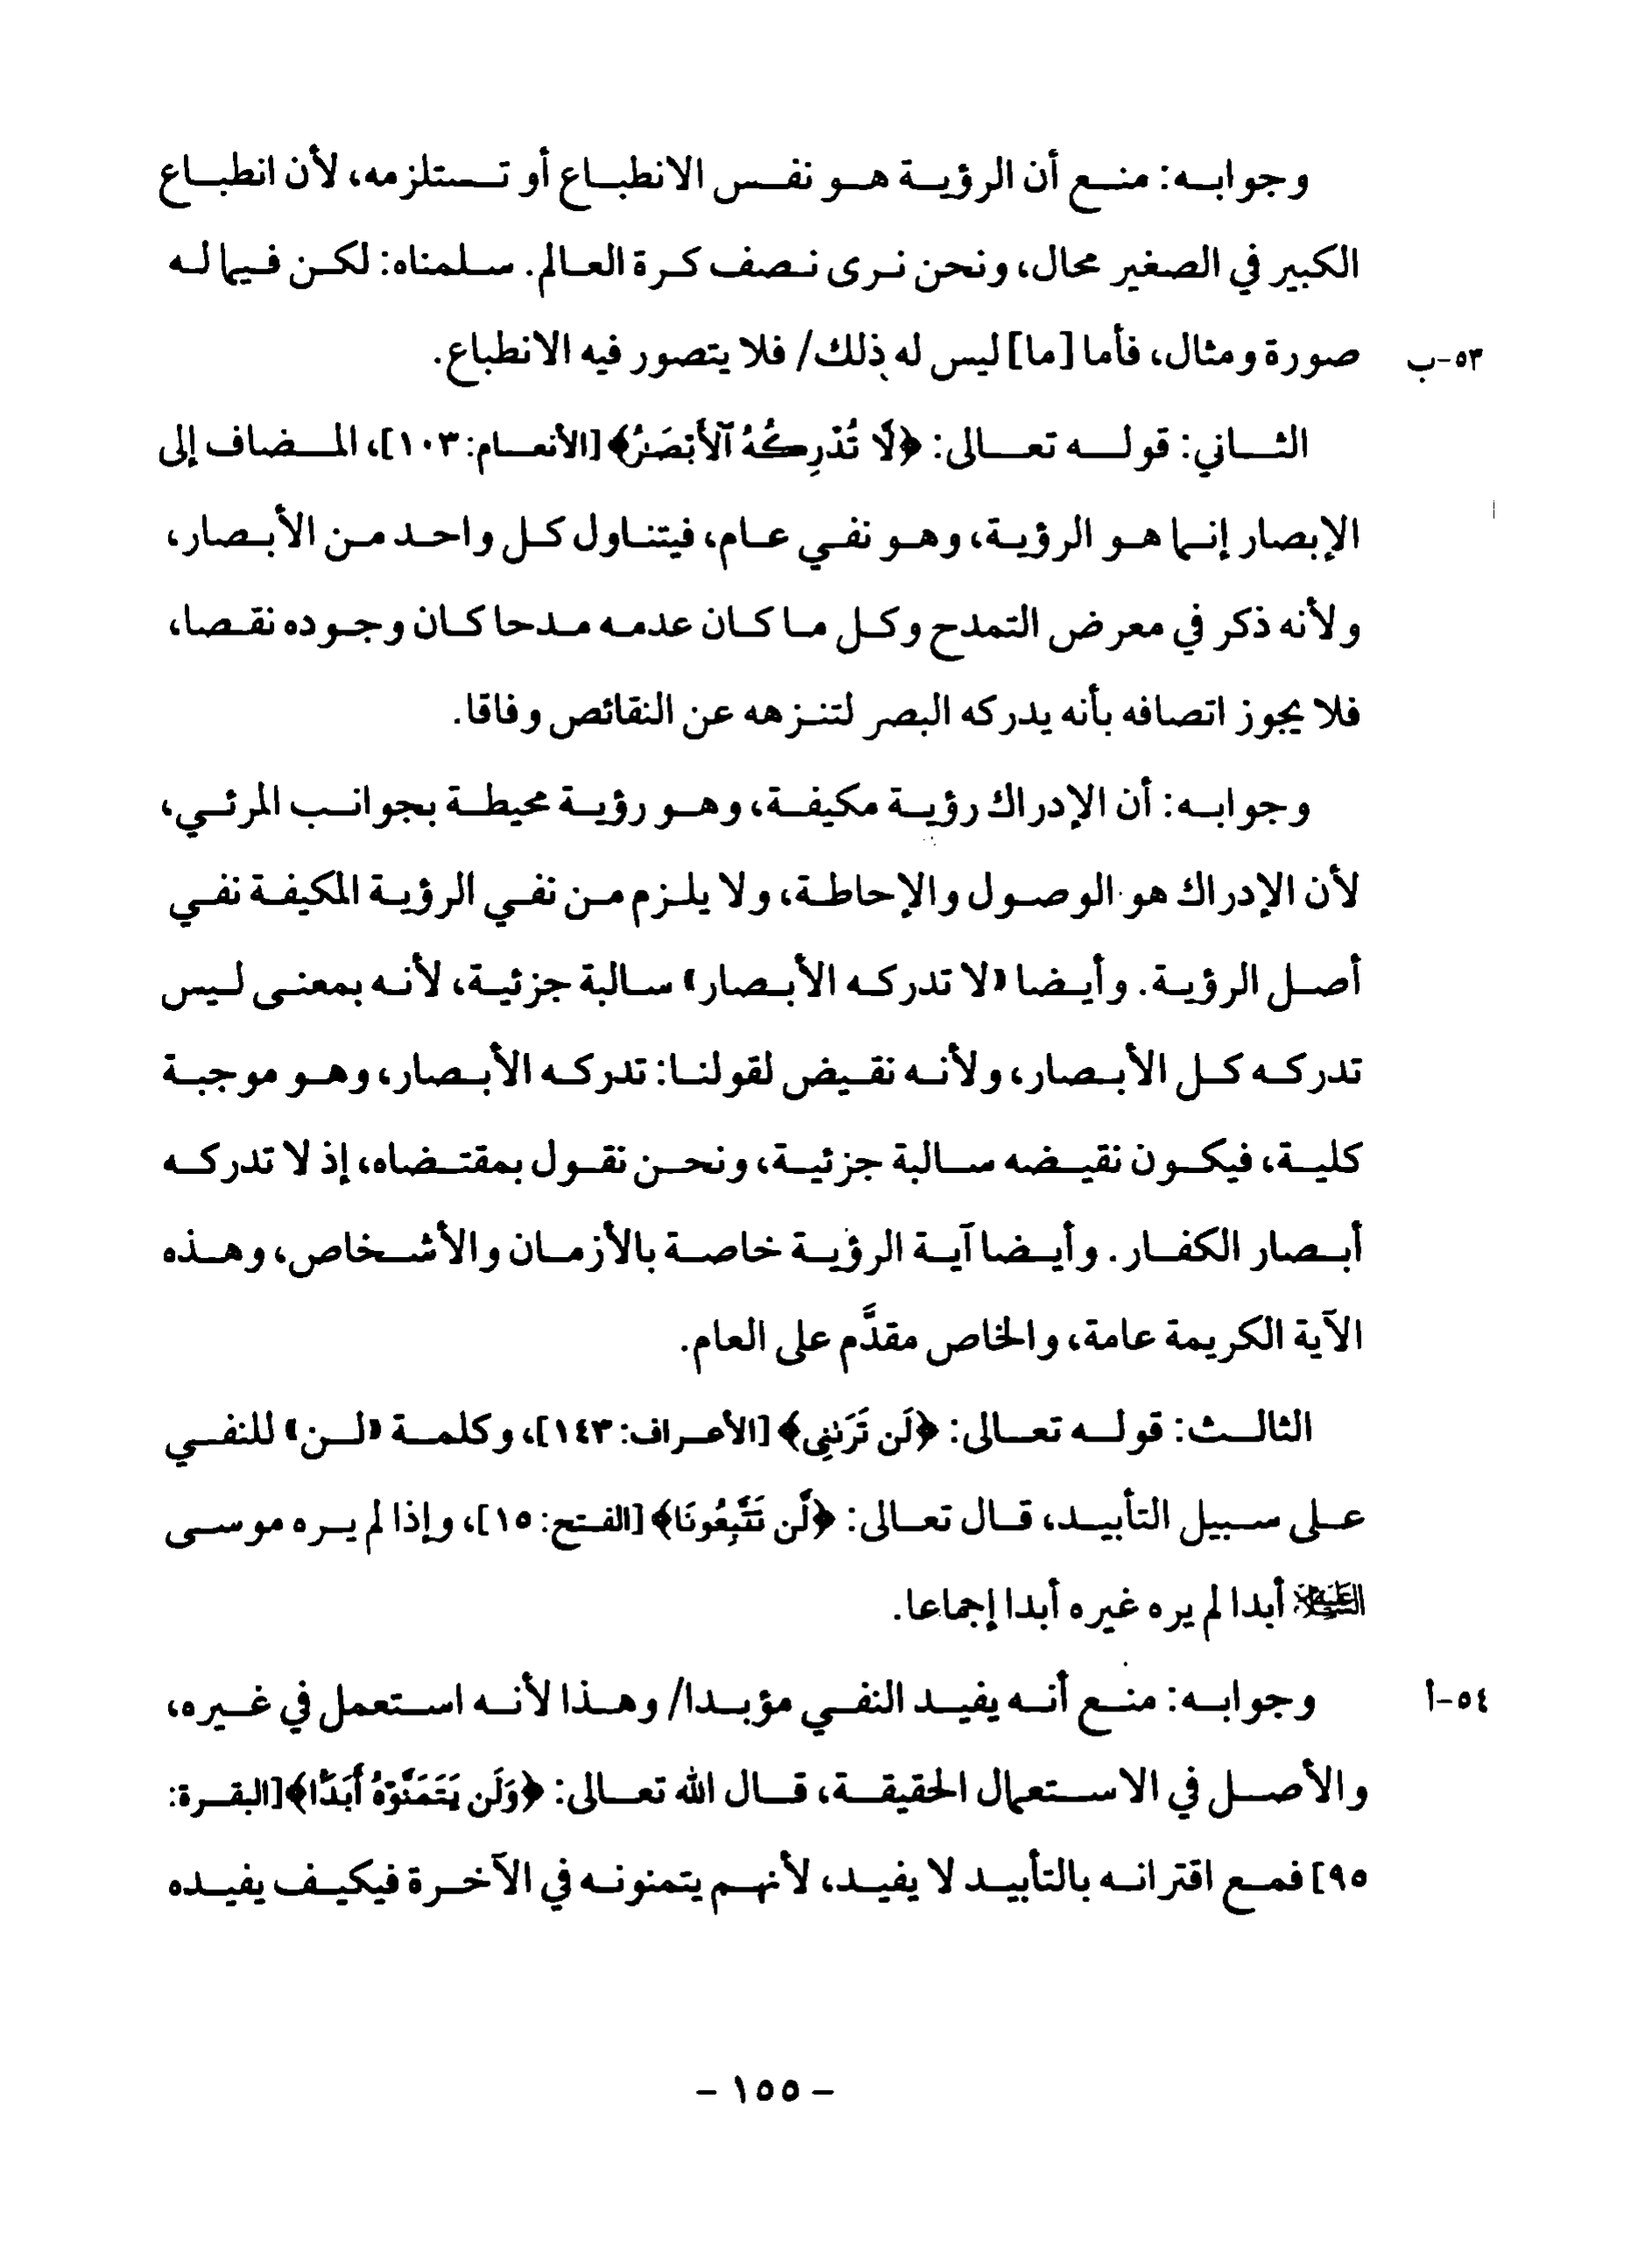 وجوابه: منع أن الرؤية هو نفس الانطباع أو تستلزمه، لأن انطباع
الكبير في الصغير محال، ونحن نرى نصف كرة العالم. سلمناه: لكن فيما له
صورة ومثال، فأما [ما] ليس له ذلك/ فلا يتصور فيه الانطباع.
٥٣-ب
الثاني: قوله تعالى: ﴿لَا تُدْرِكُهُ ٱلْأَبْصَٰرُ﴾ [الأنعام: ١٠٣]، المضاف إلى
الإبصار إنما هو الرؤية، وهو نفي عام، فيتناول كل واحد من الأبصار،
ولأنه ذكر في معرض التمدح وكل ما كان عدمه مدحا كان وجوده نقصا،
فلا يجوز اتصافه بأنه يدركه البصر لتنزهه عن النقائص وفاقا.
وجوابه: أن الإدراك رؤية مكيفة، وهو رؤية محيطة بجوانب المرئي،
لأن الإدراك هو الوصول والإحاطة، ولا يلزم من نفي الرؤية المكيفة نفي
أصل الرؤية. وأيضا «لا تدركه الأبصار» سالبة جزئية، لأنه بمعنى ليس
تدركه كل الأبصار، ولأنه نقيض لقولنا: تدركه الأبصار، وهو موجبة
كلية، فيكون نقيضه سالبة جزئية، ونحن نقول بمقتضاه، إذ لا تدركه
أبصار الكفار. وأيضا آية الرؤية خاصة بالأزمان والأشخاص، وهذه
الآية الكريمة عامة، والخاص مقدَّم على العام.
الثالث: قوله تعالى: ﴿لَن تَرَىٰنِى﴾ [الأعراف: ١٤٣]، وكلمة «لن» للنفي
على سبيل التأبيد، قال تعالى: ﴿لَّن تَتَّبِعُونَا﴾ [الفتح: ١٥]، وإذا لم يره موسى
العليه السلام أبدا لم يره غيره أبدا إجماعا.
وجوابه: منع أنه يفيد النفي مؤبدا/ وهذا لأنه استعمل في غيره،
٥٤-أ
والأصل في الاستعمال الحقيقة، قال الله تعالى: ﴿وَلَن يَتَمَنَّوْهُ أَبَدًۢا﴾ [البقرة:
٩٥] فمع اقترانه بالتأبيد لا يفيد، لأنهم يتمنونه في الآخرة فيكيف يفيده
- ١٥٥ -